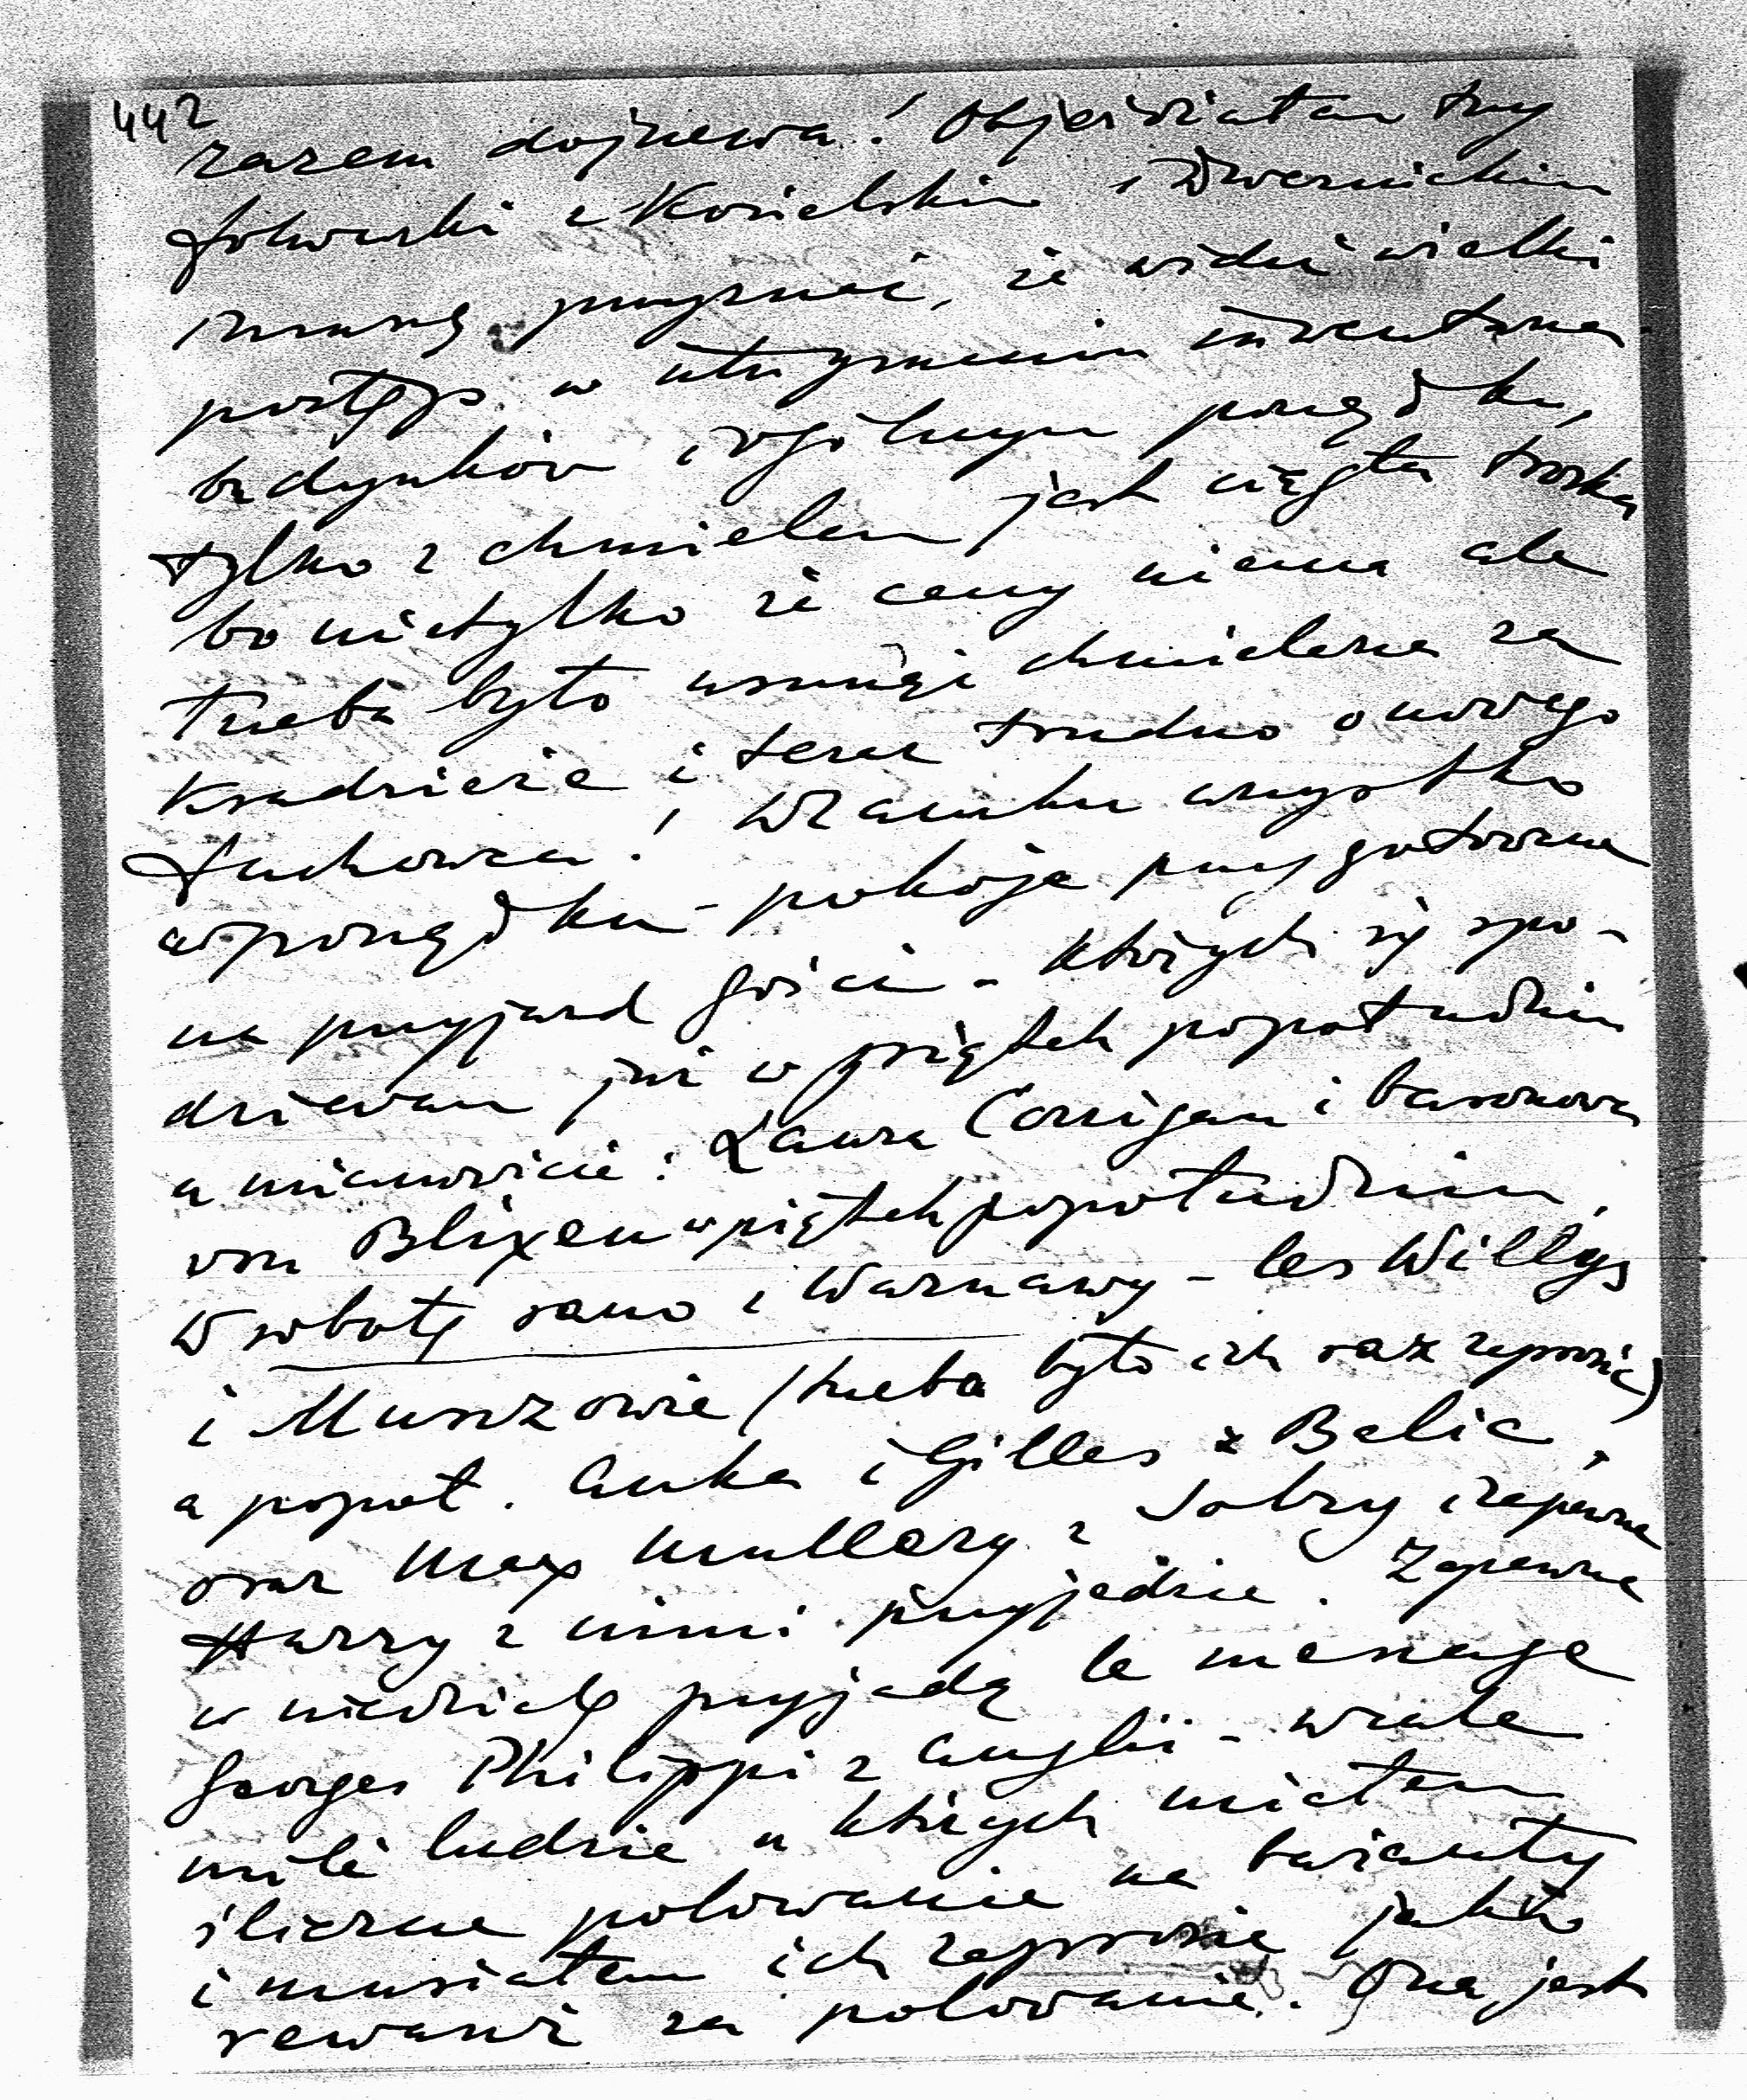 442
razem dojrzewa! Objeździłam trzy
folwarki z Kosielskim i Dwernickim
i muszę przyznać, że widzę wielki
postęp w utrzymaniu inwentarza
budynków i ogólnym porządku,
tylko z chmielem jest ciągła troska
bo nietylko że ceny niema ale
trzeba było usunąć chmielarza za
kradzieże i teraz trudno o nowego
fachowca! W zamku wszystko
w porządku - pokoje przygotowane
na przyjazd gości - których się spo-
dziewam już w piątek popołudniu
a mianowicie: Laura Corrigan i baronowa
von Blixen w piątek popołudniu,
W sobotę rano z Warszawy - les Willys
i Murszowie (trzeba było ich raz zaprosić)
a popoł. Anka i Gilles z Belic,
oraz Max Mullery z Dobry i zapewne
Harry z nimi przyjedzie. Zapewne
w niedzielę przyjadą le menage
Georges Philippi z Anglii - wcale
mili ludzie u których miałem
śliczne polowanie na bażanty
i musiałem ich zaprosić jako
rewanż za polowanie. Ona jest